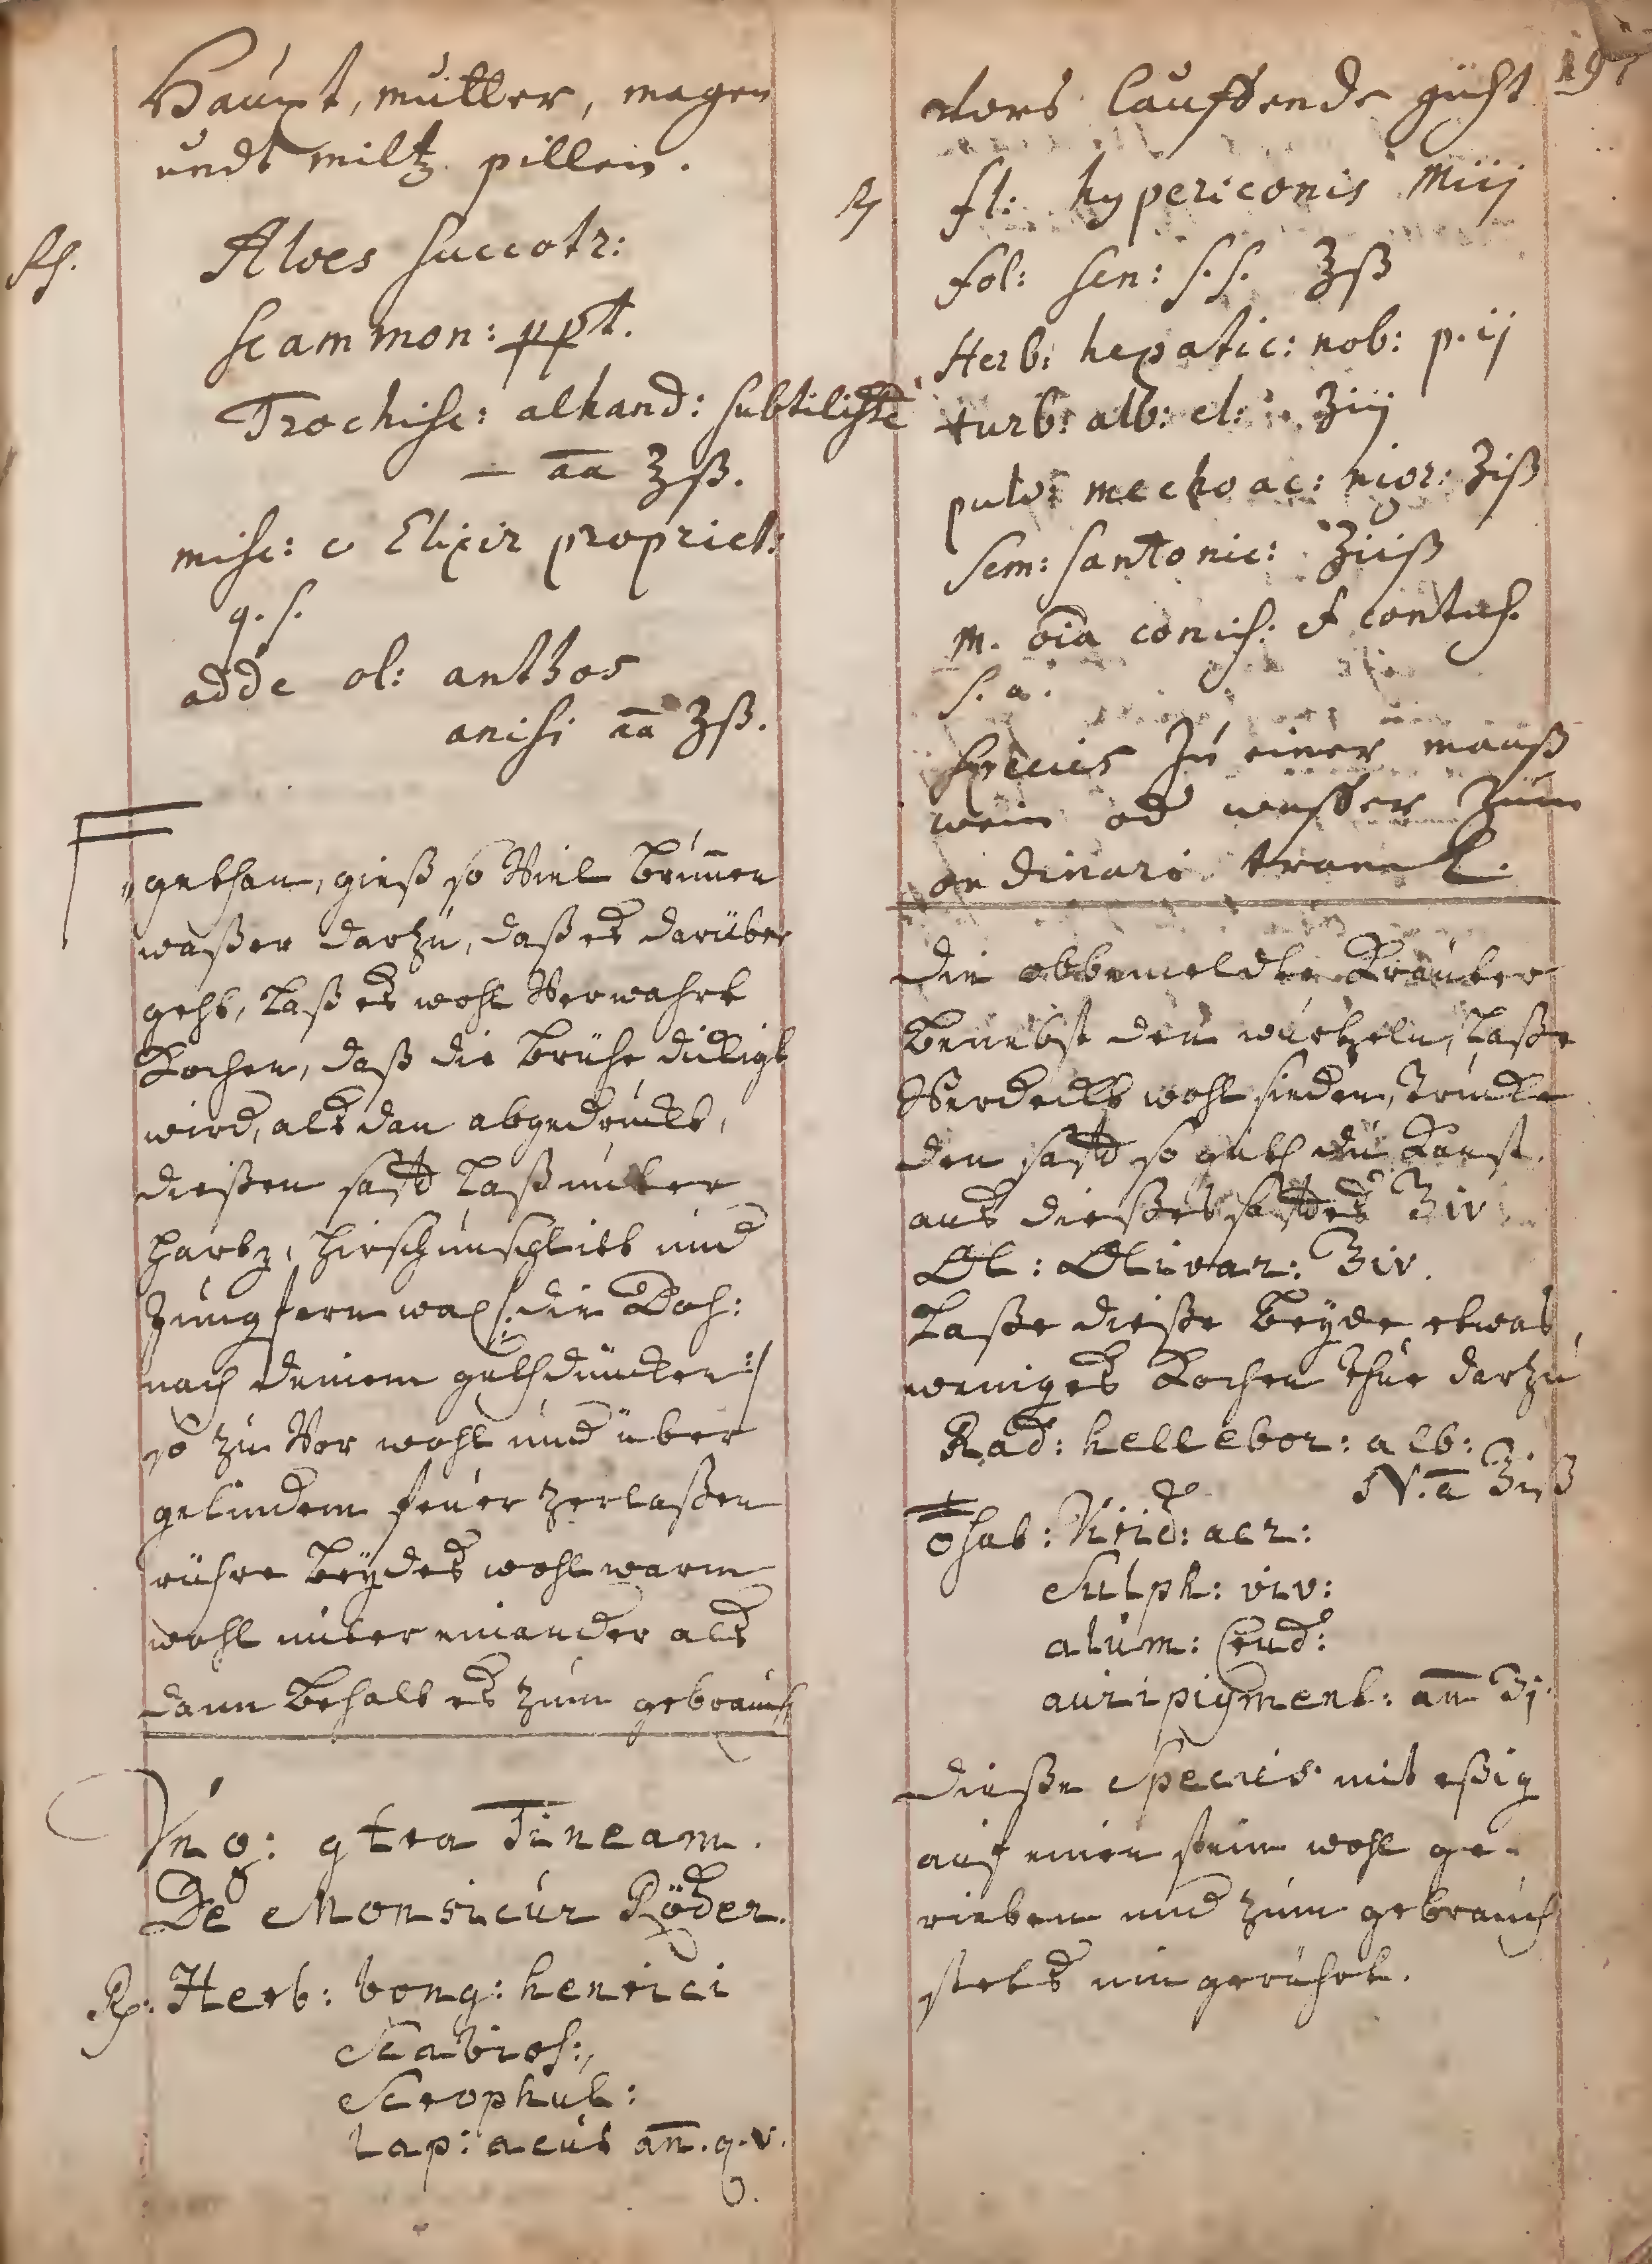 Haupt, mutter, magen
undt miltz pillen.
Rp. Aloes succotr:
scammon: ppt.
Trochisc: alhand: subtiliss
– aa ʒß.
misc: c Elixir propriet:
q. s.
adde ol: anthos
anisi aa ʒß.
gethan, gieß so Viel brunen
waßer darzu, daß es darüber
geht, laß es wohl Verwahrt
Kochen, daß die brühe
wird, als dan abgedruckt,
dießen safft laß unter
hartz, hirschunschlitt und
Jungfern wax /: die Dos:
nach deinem guthduncken :/
so zu Vor wohl und über
gelindem feüer zerlaßen
rühre beydes wohl warm
wohl unter einander als
dann behalt es zum gebrauch
Vng: gtra Tineam.
De Monsieur Röder.
Rp. Herb: bong: henrici
Scabios:,
Scrophul:
Lap: acut an̄. q. v.
197
lauffende gicht
Rp fl: hypericonis Miij
fol: sen: s. s. ʒß
Herb: hepatic: nob: p. ij
turb: alb: el: ʒiij
pulv: mechoac: nigr: ʒiß
sem: santonic: ʒiiß
m. oīa concis: et contus.
s. a.
species Zu einer maaß
wein od waßer Zum
ordinari tranck.
die obbemeldte Kräuter
benebst den wurtzeln, laße
Verdeckt wohl sieden, drucke
den safft so guth du Kanst.
aus dießes saffts ℥iv
Ol: Olivar: ℥iv.
Laße dieße beyde etwas
weniges Kochen thue darzu
Rad: hellebor: alb:
N. a ʒiß
Virid: aer:
Sulph: viv:
alum: crud:
auripigment: an̄ ʒj.
dieße Species mit eßig
auf einen stein wohl ge-
rieben und zum gebrauch
stets umgerührt.